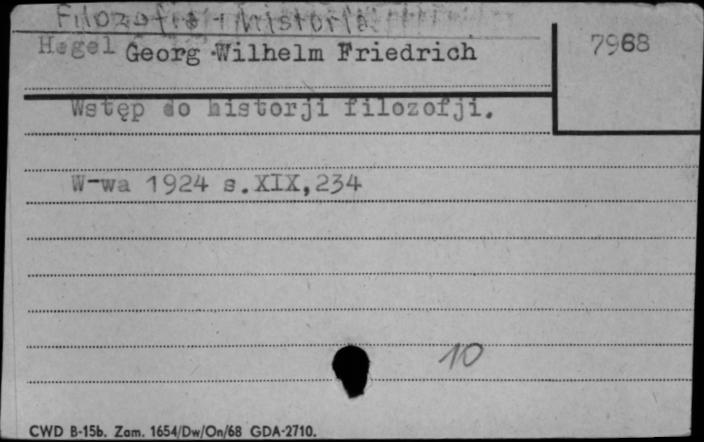 Filozofia - historia
Hegel Georg Wilhelm Friedrich
7968
Wstęp do historji filozofji.
W-wa 1924 s.XIX,234
10
CWD B-15b. Zam. 1654/Dw/On/68 GDA-2710.